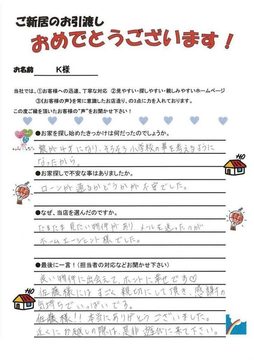 ご新居のお引渡し
おめでとうございます！
お名前 K様
当社では、①お客様への迅速、丁寧な対応 ②見やすい・探しやすい・親しみやすいホームページ
③《お客様の声》を常に意識したお店造り、の3点に力を入れております。
この度ご縁を頂いたお客様の“声”をお聞かせ下さい！
●お家を探し始めたきっかけは何だったのでしょうか。
親が年になり、そろそろ小学校の事を考えるように
なったから。
●お家探しで不安な事はありましたか。
ローンが通るかどうかが不安でした。
●なぜ、当店を選んだのですか。
たまたま見たい物件があり よったのが
ホームエージェント様でした。
●最後に一言！（担当者の対応などお聞かせ下さい）
良い物件に出会えて、ホントに幸せです♡
佐藤様には まごと 親切にして頂き、感謝の
気持ちでいっぱいです。
佐藤様!! 本当にありがとうございました。
近くにお越しの際は、是非 遊びに来て下さい。